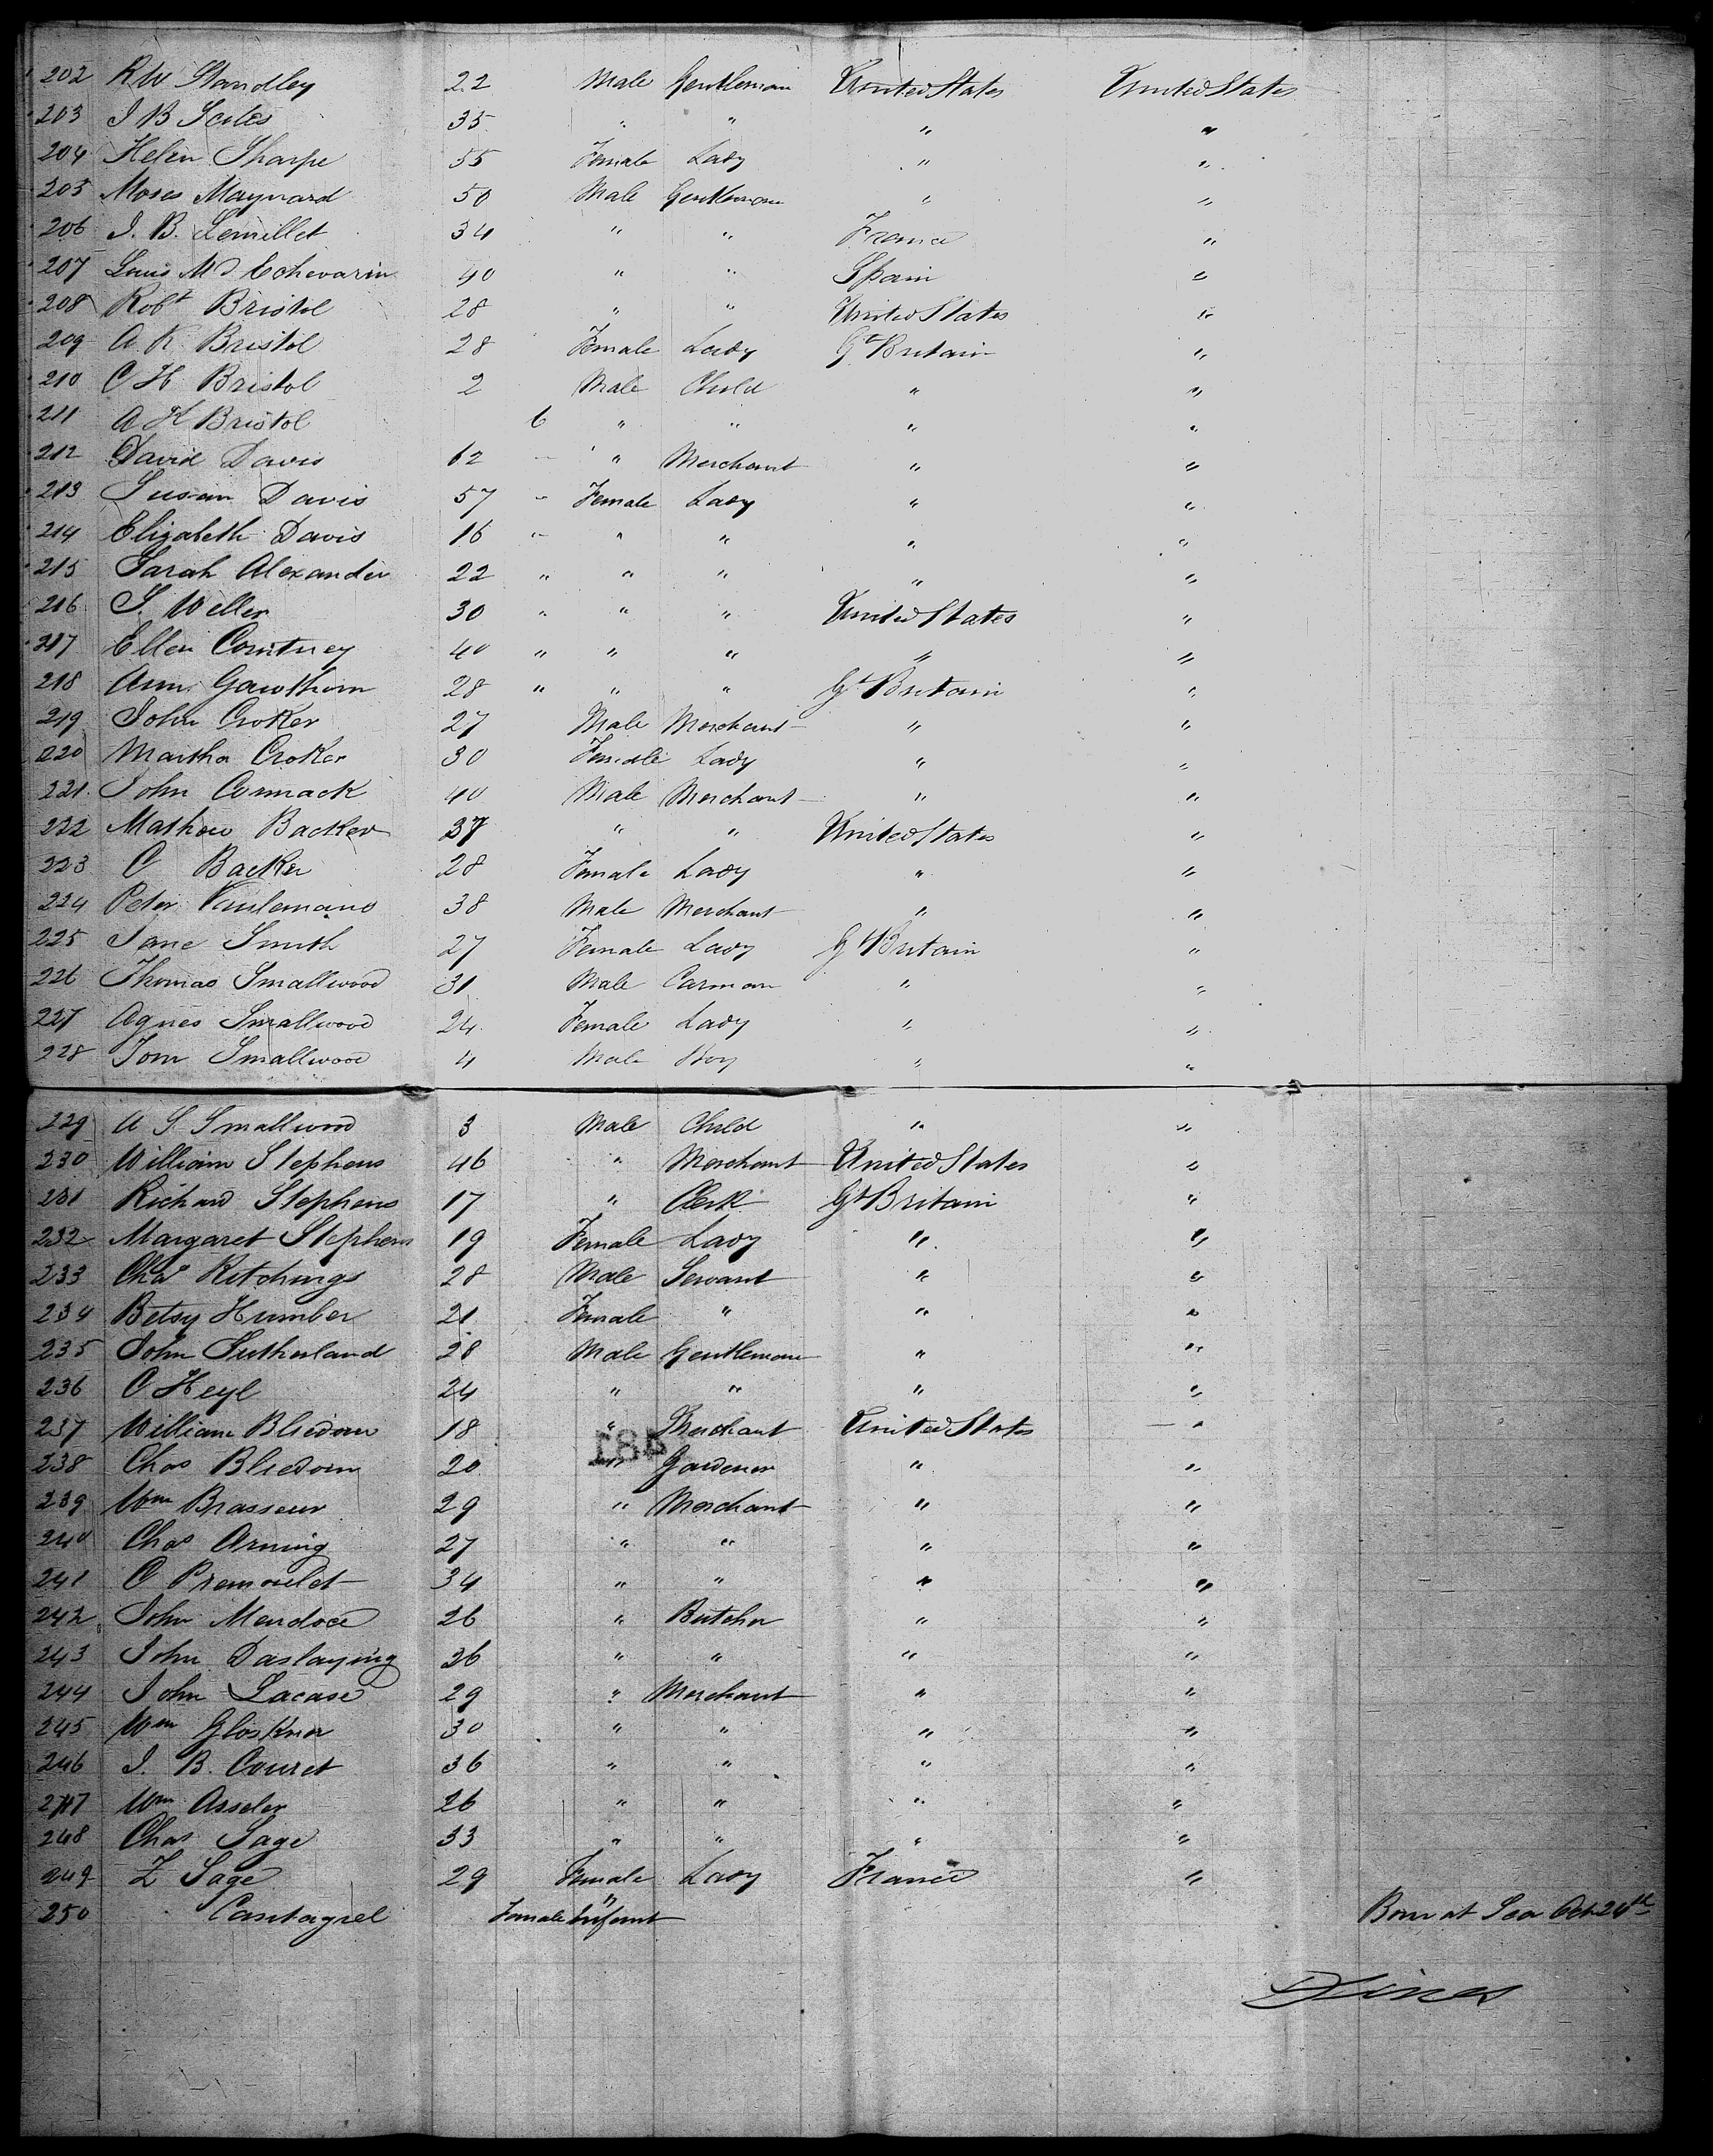 202 R W Standley 22 Male Gentleman United States United States
203 I B Scates 35 " " " "
204 Helen Sharpe 55 Female Lady " "
205 Moses Maynard 50 Male Gentleman " "
206 J. B. Lemillet 34 " " France "
207 Louis M D Echevarin 40 " " Spain "
208 Robt Bristol 28 " " United States "
209 A K Bristol 28 Female Lady Gt Britain "
210 C H Bristol 2 Male Child " "
211 A K Bristol 6 " " " "
212 David Davis 62 " " Merchant " "
213 Susan Davis 57 " Female Lady " "
214 Elizabeth Davis 16 " " " " "
215 Sarah Alexander 22 " " " " "
216 S. Weller 30 " " " United States "
217 Ellen Courtney 40 " " " " "
218 Ann Gawthorn 28 " " " Gt Britain "
219 John Croker 27 Male Merchant " "
220 Martha Croker 30 Female Lady " "
221 John Cormack 40 Male Merchant " "
222 Mathew Backer 37 " " United States "
223 C Backer 28 Female Lady " "
224 Peter 38 Male Merchant " "
225 Jane Smith 27 Female Lady Gt Britain "
226 Thomas Smallwood 31 Male Carman " "
227 Agnes Smallwood 24 Female Lady " "
228 Tom Smallwood 4 Male Boy " "
229 A S Smallwood 3 Male Child " "
230 William Stephens 46 " Merchant United States "
231 Richard Stephens 17 " Clerk Gt Britain "
232 Margaret Stephens 19 Female Lady " "
233 Chas Kitchings 28 Male Servant " "
234 Betsy Humber 21 Female " " "
235 John Sutherland 28 Male Gentleman " "
236 C Heyl 24 " " " "
237 William Bliedorn 18 " Merchant United States "
238 Chas Bliedorn 20 " Gardener " "
239 Wm Brasseur 29 " Merchant " "
240 Chas Arning 27 " " " "
241 C Premoulet 34 " " " "
242 John Mendoce 26 " Butcher " "
243 John Daslaying 36 " " " "
244 John Lacase 29 " Merchant " "
245 Wm Gloskner 30 " " " "
246 J. B. Couret 36 " " " "
247 Wm Asseler 26 " " " "
248 Chas Sage 33 " " " "
249 Z Sage 29 Female Lady France "
250 Cantagrel Female Infant " Born at Sea Oct 24th